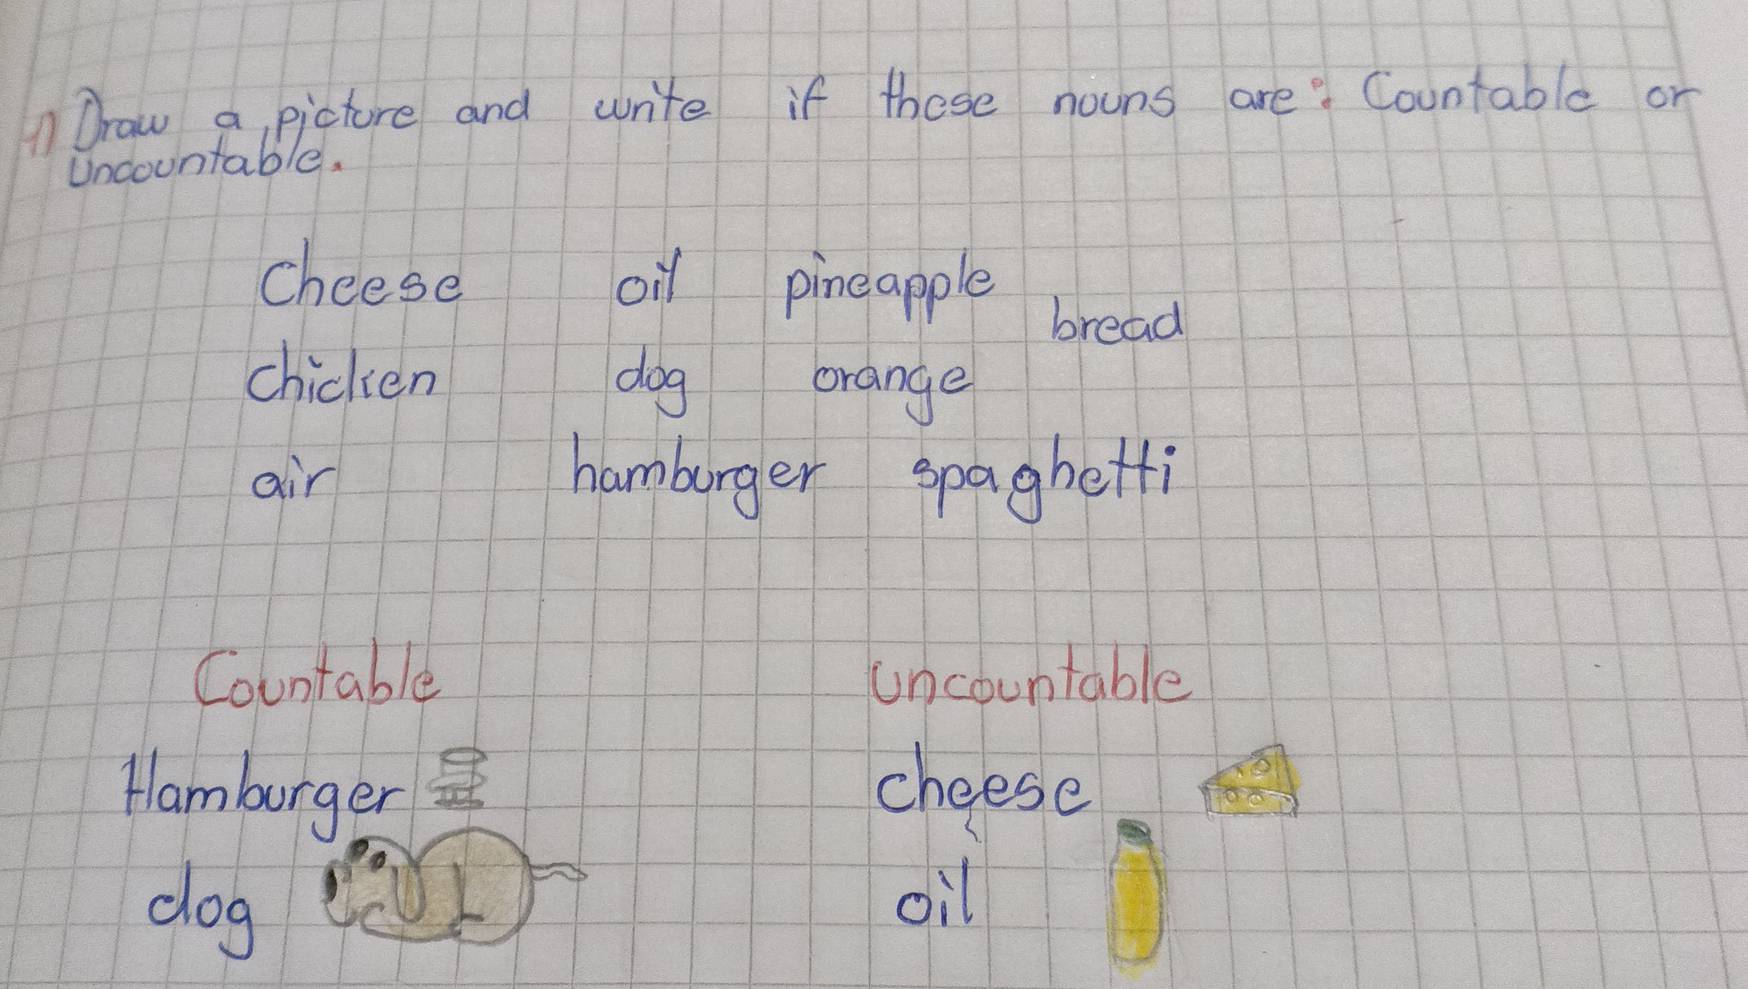 1) Draw a picture and write if these nouns are: Countable or
Uncountable.
Cheese oil pineapple
bread
chicken dog orange
air hamburger spaghetti
Countable Uncountable
Hamburger cheese
dog oil